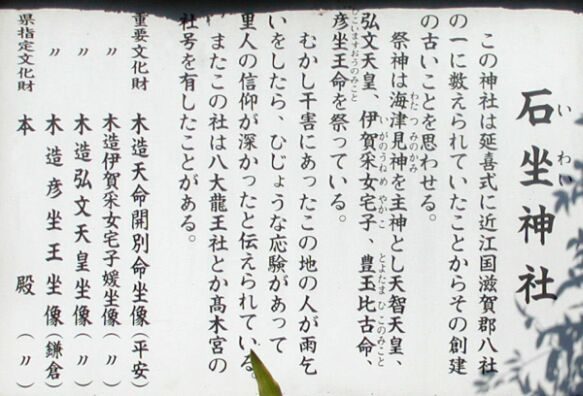 石坐神社
いわい
この神社は延喜式に近江国滋賀郡八社
の一に数えられていたことからその創建
の古いことを思わせる。
祭神は海津見神を主神とし天智天皇、
わたつみのかみ
弘文天皇、伊賀采女宅子、豊玉比古命、
いがのうねめ やかこ とよたまひこのみこと
彦坐王命を祭っている。
ひこいますおうのみこと
むかし干害にあったこの地の人が雨乞
いをしたら、ひじょうな応験があって
里人の信仰が深かったと伝えられている。
またこの社は八大龍王社とか髙木宮の
社号を有したことがある。
重要文化財 木造天命開別命坐像(平安)
〃 木造伊賀采女宅子媛坐像(〃)
〃 木造弘文天皇坐像(〃)
〃 木造彦坐王坐像(鎌倉)
県指定文化財 本殿(〃)